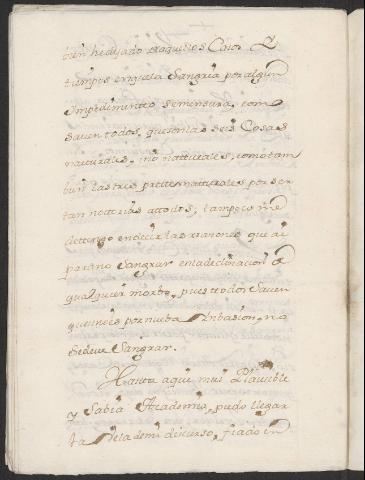 bien he dejado aaquellos Casos, y
tiempos en que la Sangria por algun
Impedimento se mensura, como
saven todos, que son las seis Cosas
naturales, ino natturales, como tam
bien las tres pretternatturales por ser
tan nottorias attodos, tampoco me
dettengo en decir las rrazones que ai
para no Sangrar en la declinacion de
qualquier morbo, pues todos Saven
que no es por nueba Inbasion, no
Se deve Sangrar.
Hasta aqui mui Plausible
y Sabia Academia, pudo llegar
la de mi discurso, fiado en